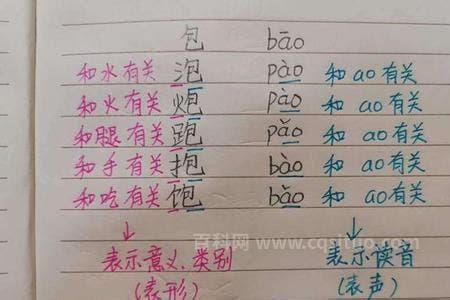 包 bāo
和水有关 泡 pào 和 ao有关
和火有关 炮 pào 和 ao有关
和腿有关 跑 pǎo 和 ao有关
和手有关 抱 bào 和 ao有关
和吃有关 饱 bǎo 和 ao有关
↓ ↓
表示意义、类别 表示读音
(表形) (表声)
百科网 www.cqsituo.com